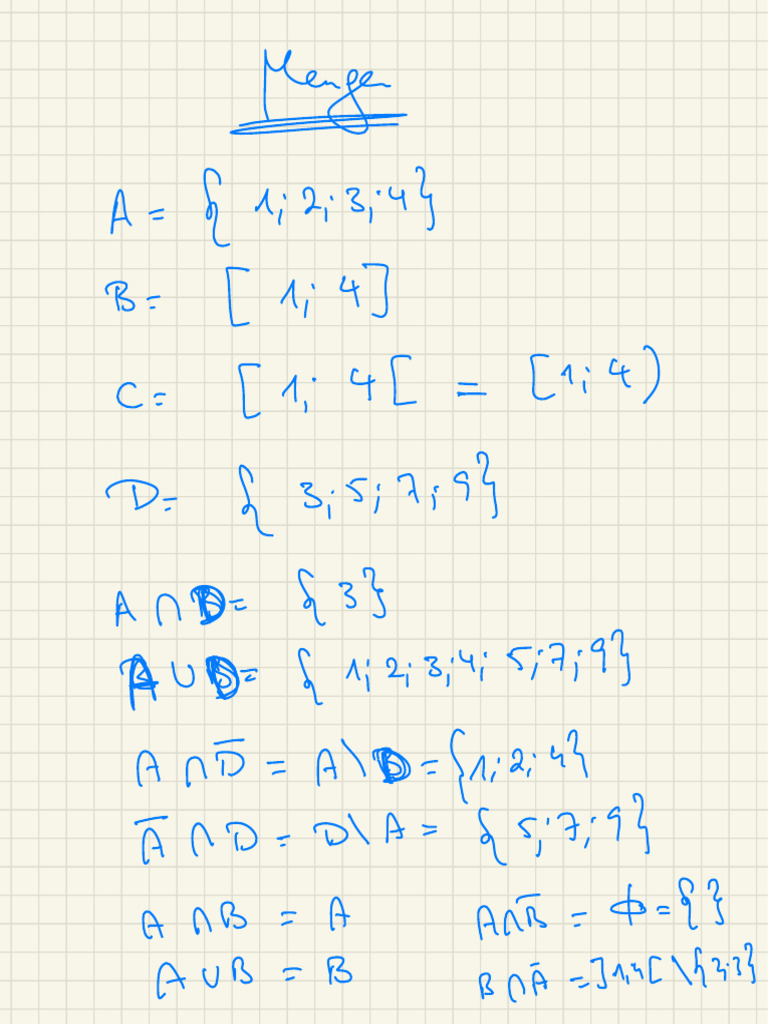 Mengen
A = { 1; 2; 3; 4}
B = [ 1; 4]
C = [ 1; 4[ = [1; 4)
D = { 3; 5; 7; 9}
A ∩ D = { 3}
A ∪ D = { 1; 2; 3; 4; 5; 7; 9}
A ∩ D̅ = A \ D = {1; 2; 4}
A̅ ∩ D = D \ A = { 5; 7; 9}
A ∩ B = A A ∩ B̅ = ϕ = { }
A ∪ B = B B ∩ A̅ = ]1; 4[ \ {2; 3}